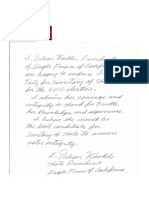 I, Eileen Koehle, President
of Eagle Forum of California
am happy to endorse
Taitz for Secretary of State
for the 2010 election.
I admire her courage and
integrity to stand for truth,
her knowledge and experience.
I believe she would be
the best candidate for
Secretary of State to assure
voter integrity.
Eileen Koehle
State President
Eagle Forum of California